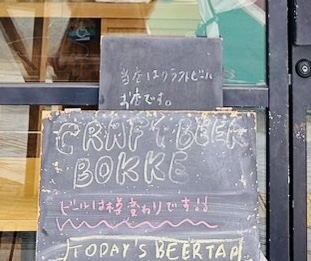 当店はクラフトビール
お店です。
CRAFT BEER
BOKKE
ビールは樽変わりです!!
TODAY'S BEER TAP